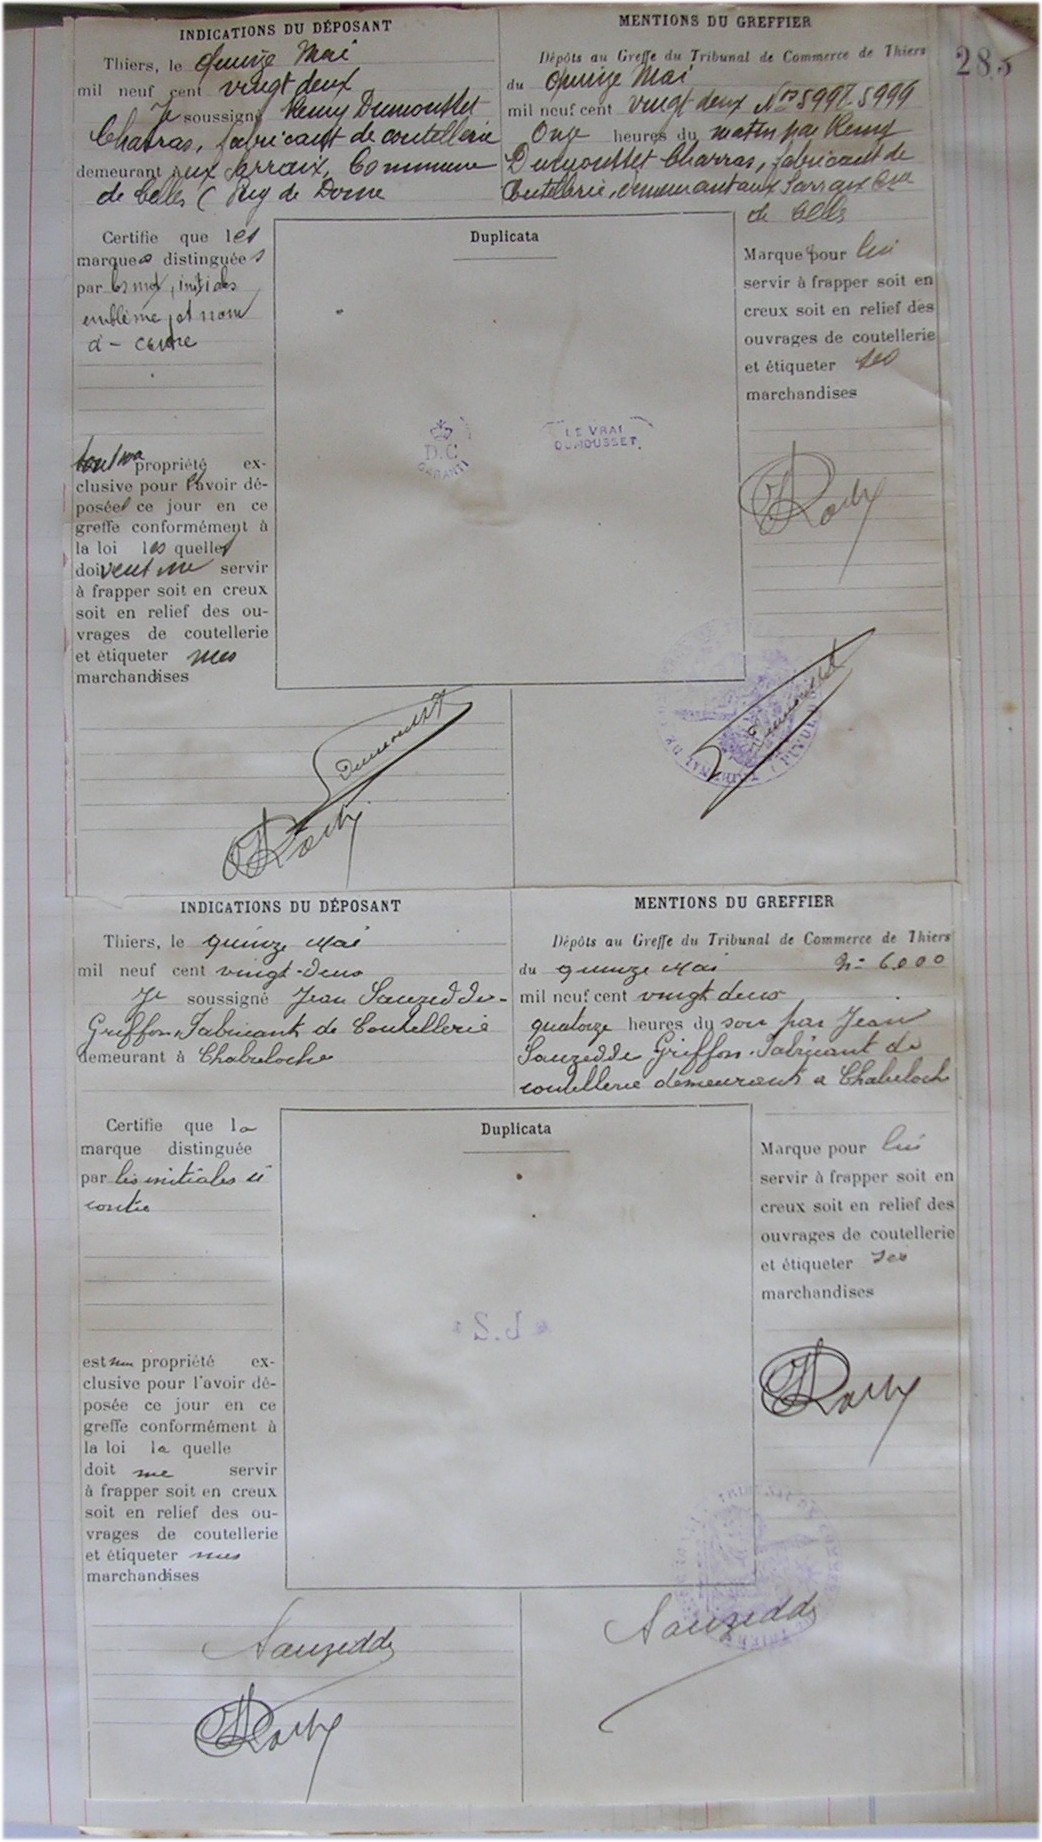 283
INDICATIONS DU DÉPOSANT
Thiers, le Quinze Mai
mil neuf cent vingt deux
Je soussigné Remy Dumousset
Charras, fabricant de coutellerie
demeurant aux Sarraix, Commune
de Celles (Puy de Dome
MENTIONS DU GREFFIER
Dépôts au Greffe du Tribunal de Commerce de Thiers
du Quinze Mai
mil neuf cent vingt deux Nos 5998-5999
Onze heures du matin par Remy
Dumousset Charras, fabricant de
Coutellerie, demeurant aux Sarraix Cne
de Celles
Certifie que les
marques distinguées
par les mots, initiales
emblème et nom
ci-contre
sont ma propriété ex-
clusive pour l'avoir dé-
posées ce jour en ce
greffe conformément à
la loi les quelles
doivent me servir
à frapper soit en creux
soit en relief des ou-
vrages de coutellerie
et étiqueter mes
marchandises
Duplicata
D.C
GARANTI
LE VRAI
DUMOUSSET
Marque pour lui
servir à frapper soit en
creux soit en relief des
ouvrages de coutellerie
et étiqueter ses
marchandises
Dumousset
Dumousset
INDICATIONS DU DÉPOSANT
Thiers, le quinze Mai
mil neuf cent vingt-deux
Je soussigné Jean Sauzedde-
Griffon, Fabricant de Coutellerie
demeurant à Chabreloche
MENTIONS DU GREFFIER
Dépôts au Greffe du Tribunal de Commerce de Thiers
du quinze Mai No 6000
mil neuf cent vingt deux
quatorze heures du soir par Jean
Sauzedde Griffon, Fabricant de
coutellerie demeurant a Chabeloch
Certifie que la
marque distinguée
par les initiales ci
contre
est ma propriété ex-
clusive pour l'avoir dé-
posée ce jour en ce
greffe conformément à
la loi la quelle
doit me servir
à frapper soit en creux
soit en relief des ou-
vrages de coutellerie
et étiqueter mes
marchandises
Duplicata
Marque pour lui
servir à frapper soit en
creux soit en relief des
ouvrages de coutellerie
et étiqueter ses
marchandises
Sauzedde
Sauzedde